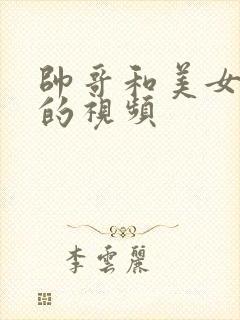 帥哥和美女
的視頻
李雲麗